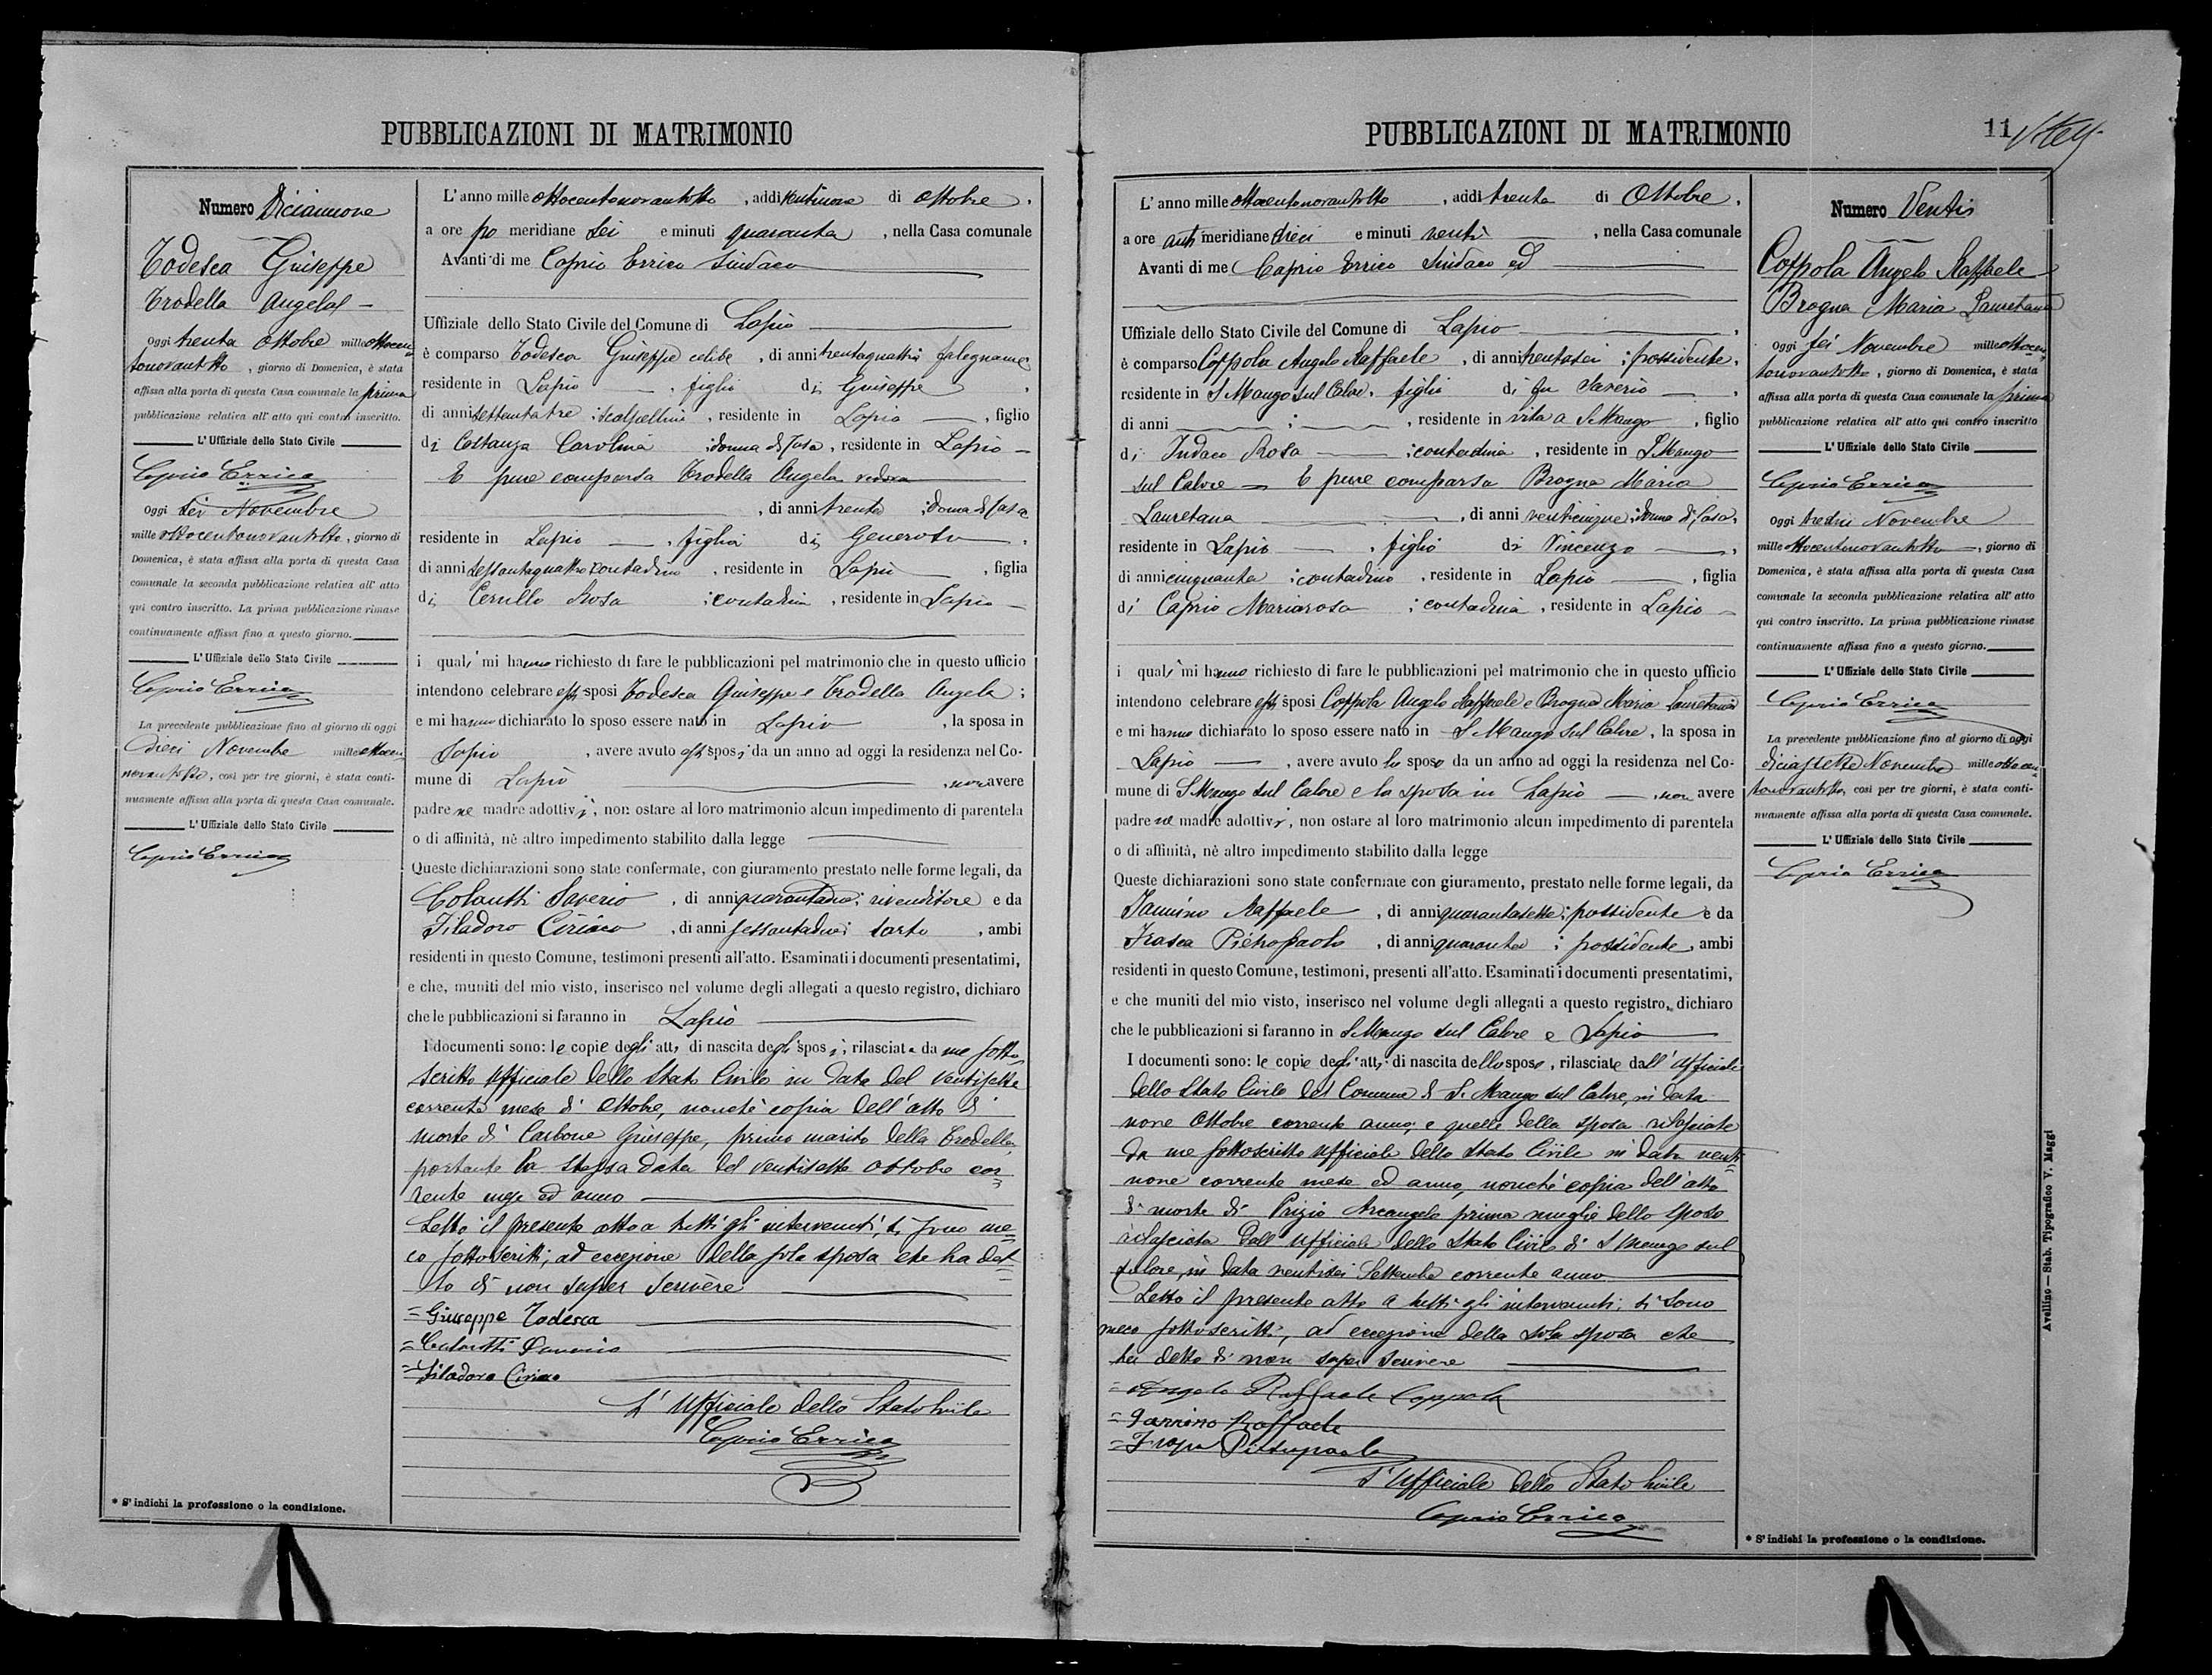 PUBBLICAZIONI DI MATRIMONIO
Numero Diciannove
Todesca Giuseppe
Trodella Angela
Oggi trenta Ottobre milleottocen
tonovantotto, giorno di Domenica, è stata
affissa alla porta di questa Casa comunale la prima
pubblicazione relativa all' atto qui contro inscritto.
L' Uffiziale dello Stato Civile
Caprio Errico
Oggi sei Novembre
mille ottocentonovantotto, giorno di
Domenica, è stata affissa alla porta di questa Casa
comunale la seconda pubblicazione relativa all' atto
qui contro inscritto. La prima pubblicazione rimase
continuamente affissa fino a questo giorno.
L' Uffiziale dello Stato Civile
Caprio Errico
La precedente pubblicazione fino al giorno di oggi
dieci Novembre mille ottocen
novantotto, così per tre giorni, è stata conti-
nuamente affissa alla porta di questa Casa comunale.
L' Uffiziale dello Stato Civile
Caprio Errico
* S' indichi la professione o la condizione.
L' anno mille ottocentonovantotto, addì ventinove di Ottobre,
a ore po meridiane sei e minuti quaranta, nella Casa comunale
Avanti di me Caprio Errico Sindaco
Uffiziale dello Stato Civile del Comune di Lapio
è comparso Todesca Giuseppe celibe, di anni trentaquattro falegname
residente in Lapio, figlio di Giuseppe,
di anni settantatre; scalpellino, residente in Lapio, figlio
di Costanza Carolina; donna di casa, residente in Lapio
E pure comparsa Trodella Angela vedova
, di anni trenta; donna di casa
residente in Lapio, figlia di Generoso,
di anni sessantaquattro contadino, residente in Lapio, figlia
di Cerullo Rosa; contadina, residente in Lapio
i quali mi hanno richiesto di fare le pubblicazioni pel matrimonio che in questo ufficio
intendono celebrare essi sposi Todesca Giuseppe e Trodella Angela;
e mi hanno dichiarato lo sposo essere nato in Lapio, la sposa in
Lapio, avere avuto essi sposi da un anno ad oggi la residenza nel Co-
mune di Lapio, non avere
padre ne madre adottivi, non ostare al loro matrimonio alcun impedimento di parentela
o di affinità, nè altro impedimento stabilito dalla legge
Queste dichiarazioni sono state confermate, con giuramento prestato nelle forme legali, da
Colantti Saverio, di anni quarantadue; rivenditore e da
Filadoro Ciriaco, di anni sessantadue; sarto, ambi
residenti in questo Comune, testimoni presenti all'atto. Esaminati i documenti presentatimi,
e che, muniti del mio visto, inserisco nel volume degli allegati a questo registro, dichiaro
che le pubblicazioni si faranno in Lapio
I documenti sono: le copie degli atti di nascita degli sposi, rilasciate da me sotto
scritto Ufficiale dello Stato Civile in data del ventisette
corrente mese di Ottobre, nonchè copia dell'atto di
morte di Carbone Giuseppe, primo marito della Trodella,
portante la stessa data del ventisette ottobre cor
rente mese ed anno
Letto il presente atto a tutti gli intervenuti, si sono me
co sottoscritti, ad eccezione della sola sposa che ha det
to di non saper scrivere
= Giuseppe Todesca
= Saverio
= Filadoro Ciriaco
L' Ufficiale dello Stato Civile
Caprio Errico
PUBBLICAZIONI DI MATRIMONIO
11
L' anno mille ottocentonovantotto, addì trenta di Ottobre,
a ore anti meridiane dieci e minuti venti, nella Casa comunale
Avanti di me Caprio Errico Sindaco ed
Uffiziale dello Stato Civile del Comune di Lapio,
è comparso Coppola Angelo Raffaele, di anni trentasei; possidente,
residente in S. Mango sul Calore, figlio di fu Saverio,
di anni ; , residente in vita a S. Mango, figlio
di Indaco Rosa; contadina, residente in S. Mango
sul Calore E pure comparsa Brogna Maria
Lauretana, di anni venticinque; donna di casa,
residente in Lapio, figlia di Vincenzo,
di anni cinquanta; contadino, residente in Lapio, figlia
di Caprio Mariarosa; contadina, residente in Lapio
i quali mi hanno richiesto di fare le pubblicazioni pel matrimonio che in questo ufficio
intendono celebrare essi sposi Coppola Angelo Raffaele e Brogna Maria Lauretana
e mi hanno dichiarato lo sposo essere nato in S. Mango sul Calore, la sposa in
Lapio, avere avuto lo sposo da un anno ad oggi la residenza nel Co-
mune di S. Mango sul Calore e la sposa in Lapio, non avere
padre ne madre adottivi, non ostare al loro matrimonio alcun impedimento di parentela
o di affinità, nè altro impedimento stabilito dalla legge
Queste dichiarazioni sono state confermate con giuramento, prestato nelle forme legali, da
Iannino Raffaele, di anni quarantasette; possidente e da
Frasca Pietropaolo, di anni quaranta; possidente, ambi
residenti in questo Comune, testimoni, presenti all'atto. Esaminati i documenti presentatimi,
e che muniti del mio visto, inserisco nel volume degli allegati a questo registro, dichiaro
che le pubblicazioni si faranno in S. Mango sul Calore e Lapio
I documenti sono: le copie degli atti di nascita dello sposo, rilasciate dall' Ufficiale
dello Stato Civile del Comune di S. Mango sul Calore, in data
nove Ottobre corrente anno, e quelle della sposa rilasciate
da me sottoscritto Ufficiale dello Stato Civile in data venti
nove corrente mese ed anno, nonchè copia dell'atto
di morte di Prizio Arcangela prima moglie dello sposo
rilasciata dall' Ufficiale dello Stato Civile di S Mango sul
Calore, in data ventisei Settembre corrente anno
Letto il presente atto a tutti gli intervenuti, si sono
meco sottoscritti, ad eccezione della sola sposa che
ha detto di non saper scrivere
= Angelo Raffaele Coppola
= Iannino Raffaele
= Frasca Pietropaolo
L' Ufficiale dello Stato Civile
Caprio Errico
Numero Venti
Coppola Angelo Raffaele
Brogna Maria Lauretana
Oggi sei Novembre mille ottocen
tonovantotto, giorno di Domenica, è stata
affissa alla porta di questa Casa comunale la prima
pubblicazione relativa all' atto qui contro inscritto
L' Uffiziale dello Stato Civile
Caprio Errico
Oggi tredici Novembre
mille ottocentonovantotto, giorno di
Domenica, è stata affissa alla porta di questa Casa
comunale la seconda pubblicazione relativa all' atto
qui contro inscritto. La prima pubblicazione rimase
continuamente affissa fino a questo giorno.
L' Uffiziale dello Stato Civile
Caprio Errico
La precedente pubblicazione fino al giorno di oggi
diciassette Novembre mille ottocen
tonovantotto, così per tre giorni, è stata conti-
nuamente affissa alla porta di questa Casa comunale.
L' Uffiziale dello Stato Civile
Caprio Errico
* S' indichi la professione o la condizione.
Avellino — Stab. Tipografico V. Maggi